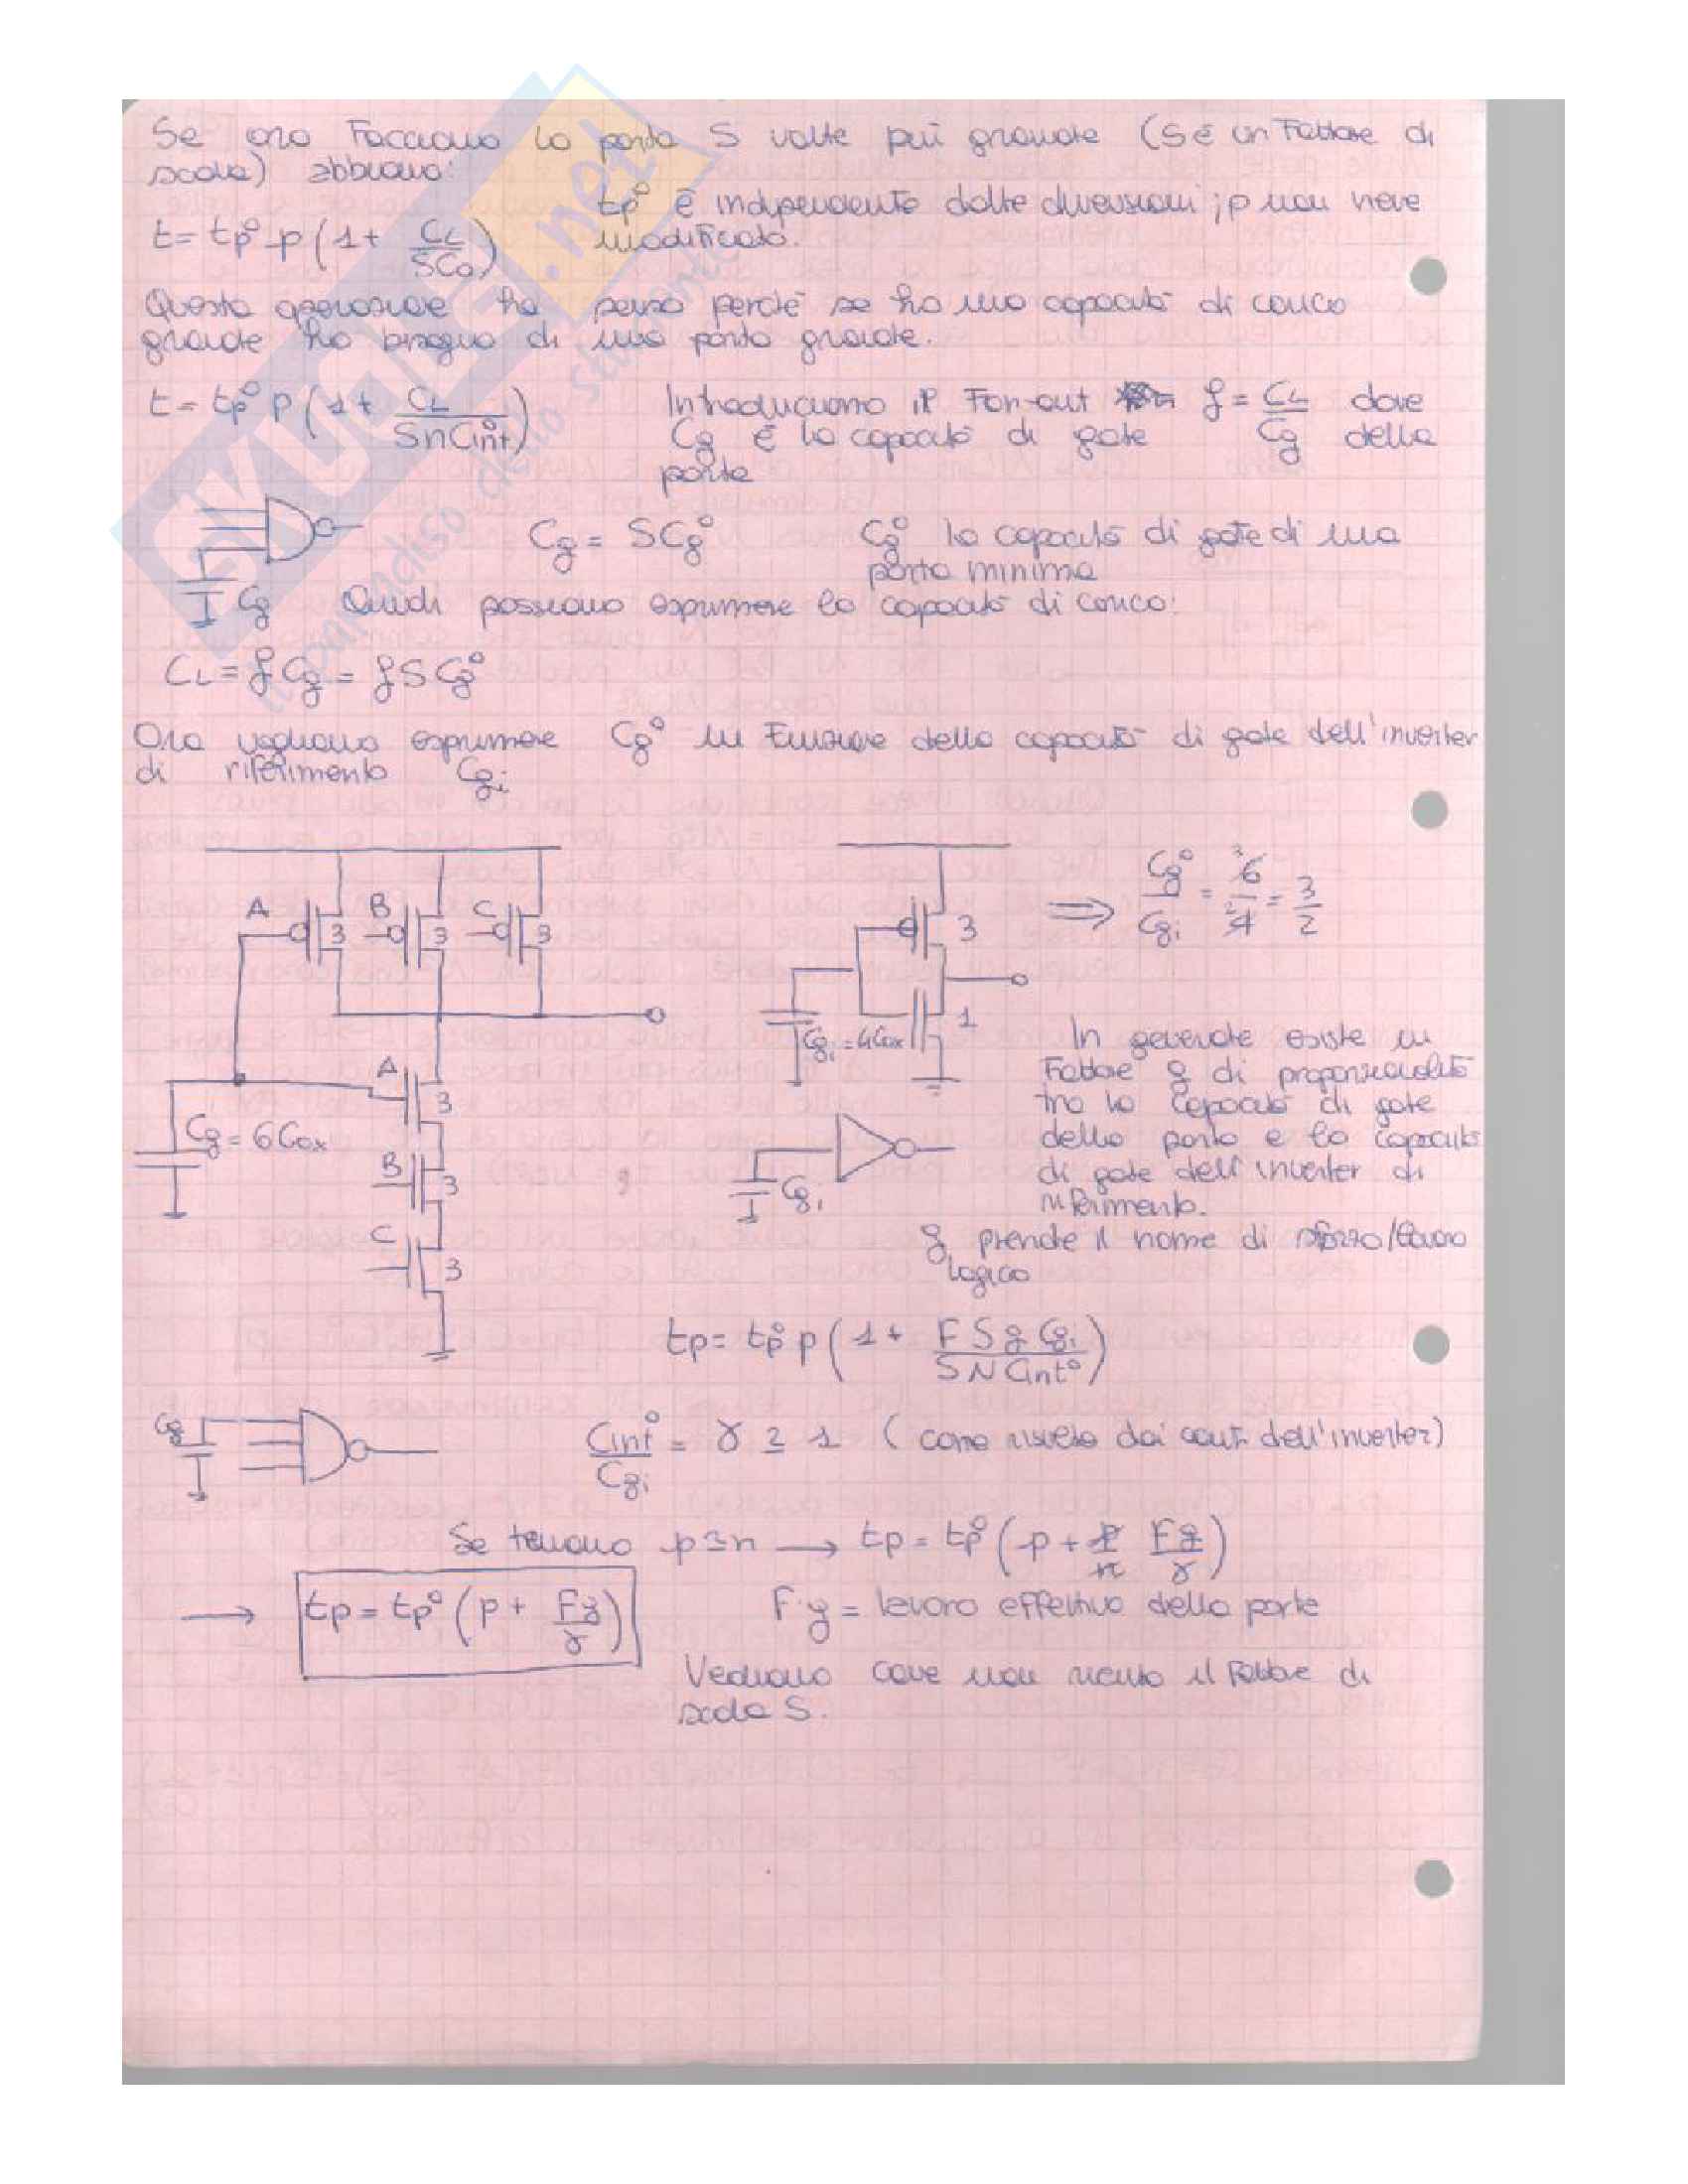 Se ora Facciamo la porta S volte più grande (S è un Fattore di
scala) abbiamo:
t = tp° p (1 + CL / SCo)
tp° è indipendente dalle dimensioni; p non viene
modificato.
Questa operazione ha senso perchè se ho una capacità di carico
grande ho bisogno di una porta grande.
t = tp° p (1 + CL / SnCint°)
Introduciamo il Fan-out f = CL / Cg dove
Cg è la capacità di gate della
porta
Cg = SCg°
Cg° la capacità di gate di una
porta minima
Cg Quindi possiamo esprimere la capacità di carico:
CL = f Cg = f S Cg°
Ora vogliamo esprimere Cg° in Funzione della capacità di gate dell'inverter
di riferimento Cgi
A 3 B 3 C 3
3
⇒ Cg° / Cgi = 6 / 4 = 3 / 2
1
Cgi = 4Cox
In generale esiste un
Fattore g di proporzionalità
tra la capacità di gate
della porta e la capacità
di gate dell'inverter di
riferimento.
A 3
Cg = 6Cox
B 3
Cgi
C 3
g prende il nome di sforzo/lavoro
logico
tp = tp° p (1 + F S g Cgi / S N Cint°)
Cg
Cint° / Cgi = γ ≥ 1 (come visto dai conti dell'inverter)
Se teniamo p≃n → tp = tp° (p + p/n Fg/γ)
→ tp = tp° (p + Fg/γ)
F·g = lavoro effettivo della porta
Vediamo come non rientra il Fattore di
scala S.
SKUOLA.net
il paradiso dello studente